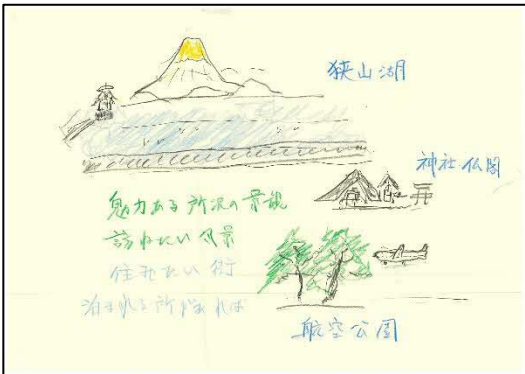 狭山湖
神社仏閣
魅力ある所沢の景観
訪れたい風景
住みたい街
泊まれる所があれば
航空公園